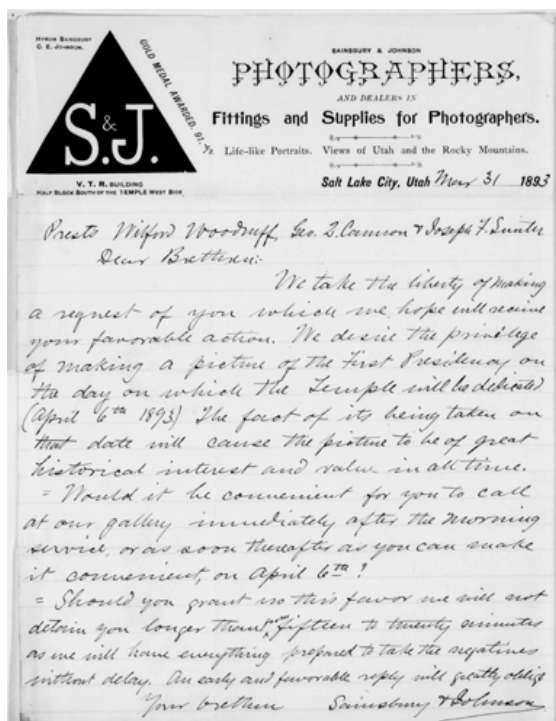 HYRUM SAINSBURY
C. E. JOHNSON.
GOLD MEDAL AWARDED, 91,
S & J.
V. T. R. BUILDING
HALF BLOCK SOUTH OF THE TEMPLE WEST SIDE
SAINSBURY & JOHNSON
PHOTOGRAPHERS,
AND DEALERS IN
Fittings and Supplies for Photographers.
Life-like Portraits. Views of Utah and the Rocky Mountains.
Salt Lake City, Utah Mar 31 1893
Prests Wilford Woodruff, Geo. Q. Cannon & Joseph F. Smith
Dear Brethren:
We take the liberty of making
a request of you which we hope will receive
your favorable action. We desire the privilege
of making a picture of the First Presidency on
the day on which the Temple will be dedicated
(April 6th 1893) The fact of its being taken on
that date will cause the picture to be of great
historical interest and value in all time.
= Would it be convenient for you to call
at our gallery immediately after the morning
service, or as soon thereafter as you can make
it convenient, on April 6th?
= Should you grant us this favor we will not
detain you longer than from fifteen to twenty minutes
as we will have everything prepared to take the negatives
without delay. An early and favorable reply will greatly oblige
Your brethren Sainsbury & Johnson